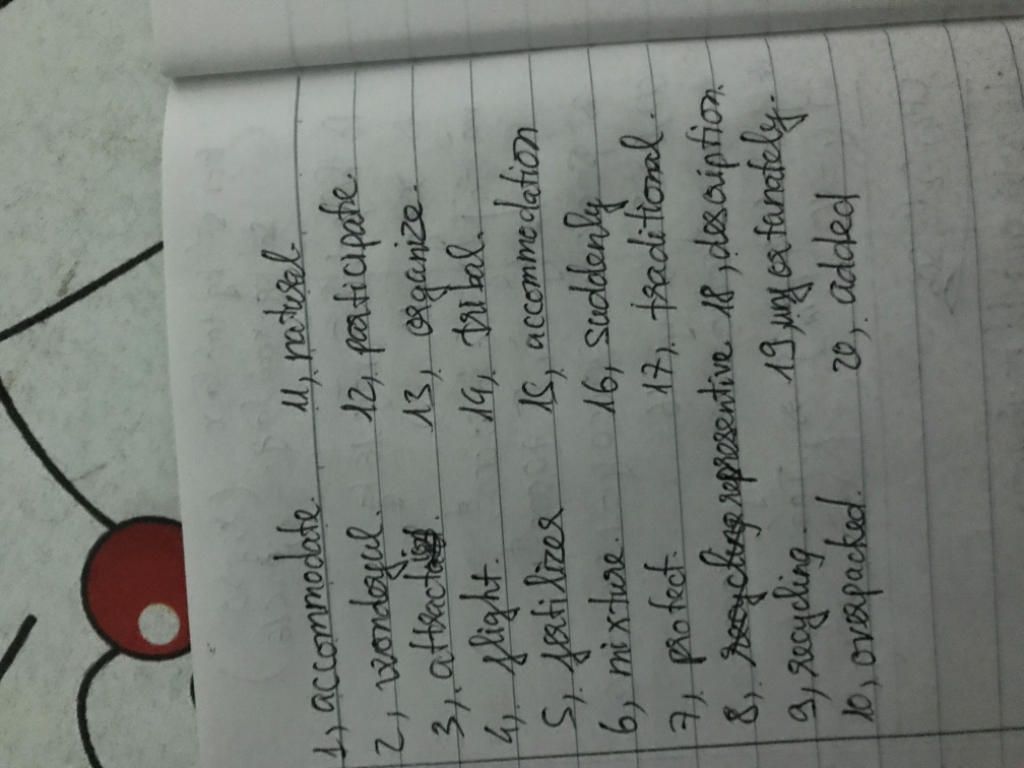 1, accommodate. 11, naturel.
2, wondoful. 12, participate.
3, attract. 13, organize.
4, flight. 14, tribal.
5, fertilizer 15, accommodation
6, mixture. 16, suddenly
7, protect. 17, traditional.
8, representive 18, description.
9, recycling 19, unfortanately.
10, overpacked. 20, added